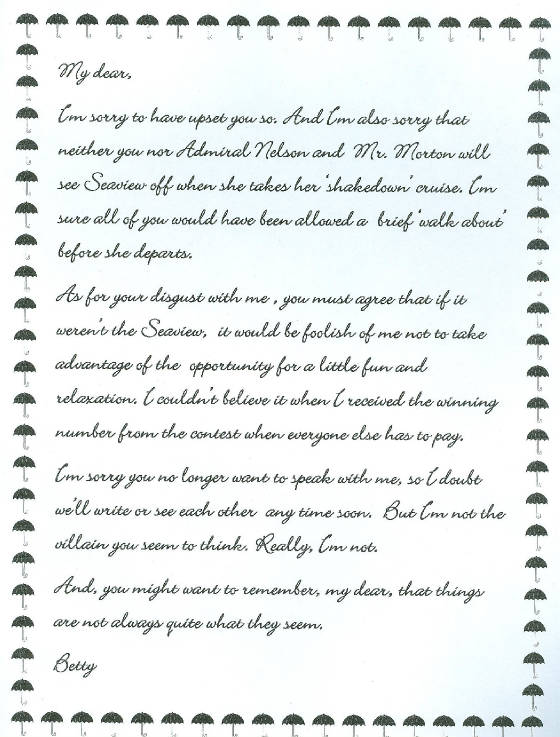 My dear,
I'm sorry to have upset you so. And I'm also sorry that
neither you nor Admiral Nelson and Mr. Morton will
see Seaview off when she takes her 'shakedown' cruise. I'm
sure all of you would have been allowed a brief 'walk about'
before she departs.
As for your disgust with me, you must agree that if it
weren't the Seaview, it would be foolish of me not to take
advantage of the opportunity for a little fun and
relaxation. I couldn't believe it when I received the winning
number from the contest when everyone else has to pay.
I'm sorry you no longer want to speak with me, so I doubt
we'll write or see each other any time soon. But I'm not the
villain you seem to think. Really, I'm not.
And, you might want to remember, my dear, that things
are not always quite what they seem.
Betty